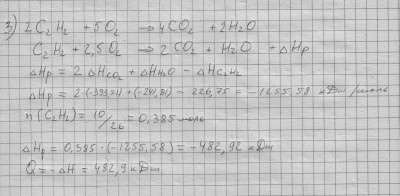 3) 2C₂H₂ + 5O₂ → 4CO₂ + 2H₂O
C₂H₂ + 2,5O₂ → 2CO₂ + H₂O + ΔHр
ΔHр = 2ΔHCO₂ + ΔHH₂O - ΔHC₂H₂
ΔHр = 2·(-393,51) + (-241,81) - 226,75 = -1255,58 кДж/моль
n(C₂H₂) = 10/26 = 0,385 моль
ΔHр = 0,385·(-1255,58) = -482,92 кДж
Q = -ΔH = 482,9 кДж